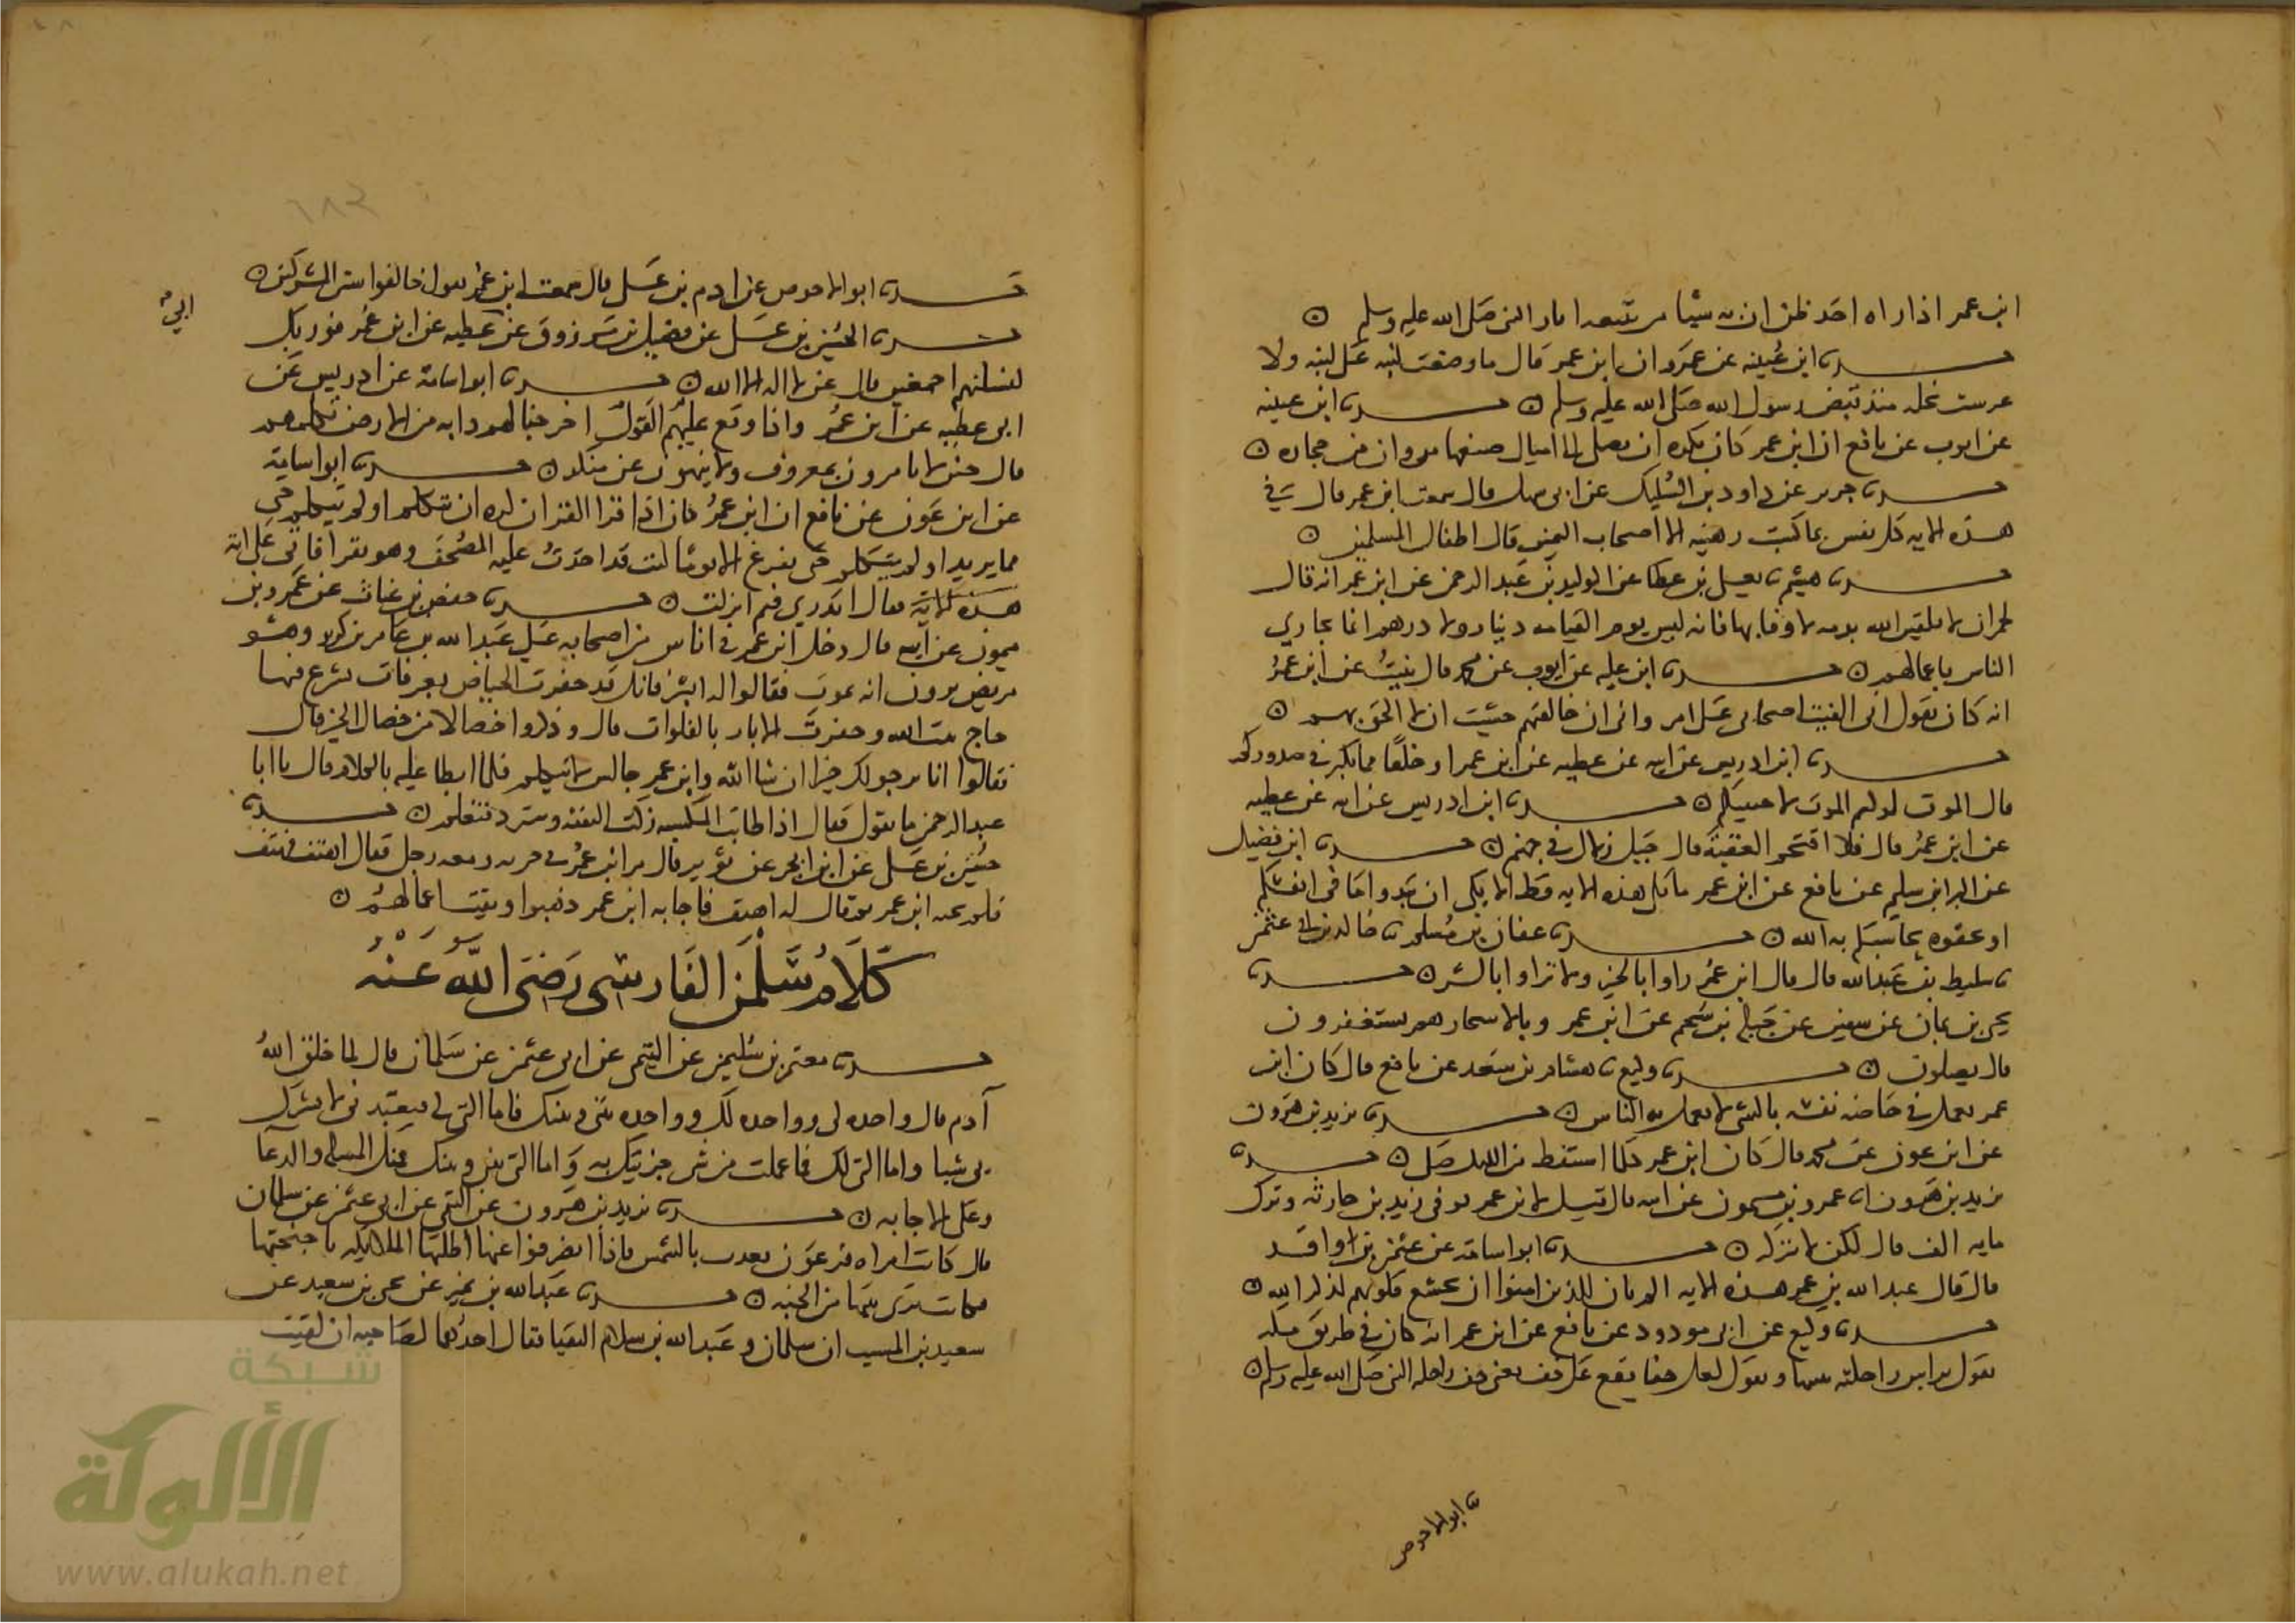 ابن عمر اذا راه احد ظن ان به شيئا من تتبعه اثار النبي صلى الله عليه وسلم
حدثنا ابن عيينه عن عمرو ان ابن عمر قال ما وضعت لبنه على لبنه ولا
غرست نخله منذ قبض رسول الله صلى الله عليه وسلم حدثنا ابن عيينه
عن ايوب عن نافع ان ابن عمر كان يكره ان يصلي الى اميال صنعها مروان من حجاره
حدثنا جرير عن داود بن السليك عن ابي سهل قال سمعت ابن عمر قال في
هذه الايه كل نفس بما كسبت رهينه الا اصحاب اليمين قال اطفال المسلمين
حدثنا هشيم ثنا يعلى بن عطا عن الوليد بن عبد الرحمن عن ابن عمر انه قال
لحمران لا تلقين الله بذمه لا وفا بها فانه ليس يوم القيامه دينار ولا درهم انما يجازي
الناس باعمالهم حدثنا ابن عليه عن ايوب عن محمد قال نبيت عن ابن عمر
انه كان يقول اني الفيت اصحابي على امر واني ان خالفتهم خشيت ان لا الحق بهم
حدثنا ابن ادريس عن ابيه عن عطيه عن ابن عمر او خلقا مما يكبر في صدوركم
قال الموت لو كنتم الموت لاحييتكم حدثنا ابن ادريس عن ابيه عن عطيه
عن ابن عمر قال فلا اقتحم العقبة قال جبل زلال في جهنم حدثنا ابن فضيل
عن البراء بن سليم عن نافع عن ابن عمر ما تلى هذه الايه قط الا بكى ان تبدوا ما في انفسكم
او تخفوه يحاسبكم به الله حدثنا عفان بن مسلم ثنا خالد بن ابي عثمن
ثنا سليط بن عبد الله قال قال ابن عمر راوا بالخير ولا تراوا بالشر حدثنا
يحيى بن يمان عن سفين عن جبلة بن سحيم عن ابن عمر وبالاسحار هم يستغفرون
قال يصلون حدثنا وكيع ثنا هشام بن سعد عن نافع قال كان ابن
عمر يعمل في خاصه نفسه بالشي لا يعمل به الناس حدثنا يزيد بن هرون
عن ابن عون عن محمد قال كان ابن عمر كلما استيقظ من الليل صلى حدثنا
يزيد بن هرون انا عمرو بن ميمون عن ابيه قال قيل لابن عمر توفي زيد بن حارثه وترك
مايه الف قال لكن لا تتركه حدثنا ابو اسامه عن عثمن بن واقد
قال قال عبد الله بن عمر هذه الايه الم يان للذين امنوا ان تخشع قلوبهم لذكر الله
حدثنا وكيع عن ابي مودود عن نافع عن ابن عمر انه كان في طريق مكه
يقول براس راحلته يثنيها ويقول لعل خفا يقع على خف يعني خف راحله النبي صلى الله عليه وسلم
ثنا ابو الاحوص
٦٨٢
حدثنا ابو الاحوص عن ادم بن علي قال سمعت ابن عمر يقول خالفوا سنن المشركين
حدثنا الحسين بن علي عن فضيل بن مرزوق عن عطيه عن ابن عمر فوربك
لنسلنهم اجمعين قال عن لا اله الا الله حدثنا ابو اسامة عن ادريس عن
ابي عطيه عن ابن عمر واذا وقع عليهم القول اخرجنا لهم دابه من الارض تكلمهم
قال حين لا يامرون بمعروف ولا ينهون عن منكر حدثنا ابو اسامة
عن ابن عون عن نافع ان ابن عمر كان اذا قرا القران كره ان يتكلم او لم يتكلم حتى
مما يريد او لم يتكلم حتى يفرغ الا يوما كنت قد اخذت عليه المصحف وهو يقرا فاتى على اية
هذه الاية فقال اتدري فيم انزلت حدثنا حفص بن غياث عن عمرو بن
ميمون عن ابيه قال دخل ابن عمر في اناس من اصحابه على عبد الله بن عامر بن كريز وهو
مريض يرون انه يموت فقالوا له ابشر فانك قد حفرت الحياض بعرفات يشرع فيها
حاج بيت الله وحفرت الابار بالفلوات قال وذكروا خصالا من خصال الخير قال
فقالوا انا نرجو لك خيرا ان شا الله وابن عمر جالس لا يتكلم فلما ابطا عليه بالكلام قال يا ابا
عبد الرحمن ما تقول فقال اذا طابت المكسبه زكت النفقه وسترد فتعلم حدثنا
حسين بن علي عن ابن ابجر عن ثوير قال مر ابن عمر في خربه ومعه رجل فقال اهتف فهتف
فلم يجبه ابن عمر ثم قال له اهتف فاجابه ابن عمر ذهبوا وبقيت اعمالهم
كلام سلمن الفارسي رضي الله عنه
حدثنا معتمر بن سليمن عن التيمي عن ابي عثمن عن سلمان قال لما خلق الله
آدم قال واحده لي وواحده لك وواحده بيني وبينك فاما التي لي فتعبدني لا تشرك
بي شيا واما التي لك فما عملت من شي جزيتك به واما التي بيني وبينك فمنك المسله والدعا
وعلي الاجابه حدثنا يزيد بن هرون عن التيمي عن ابي عثمن عن سلمان
قال كانت امراه فرعون تعذب بالشمس فاذا انصرفوا عنها اظلتها الملايكه باجنحتها
فكانت ترى بيتها من الجنه حدثنا عبد الله بن نمير عن يحيى بن سعيد عن
سعيد بن المسيب ان سلمان وعبد الله بن سلام التقيا فقال احدهما لصاحبه ان لقيت
شبكة
الألوكة
www.alukah.net